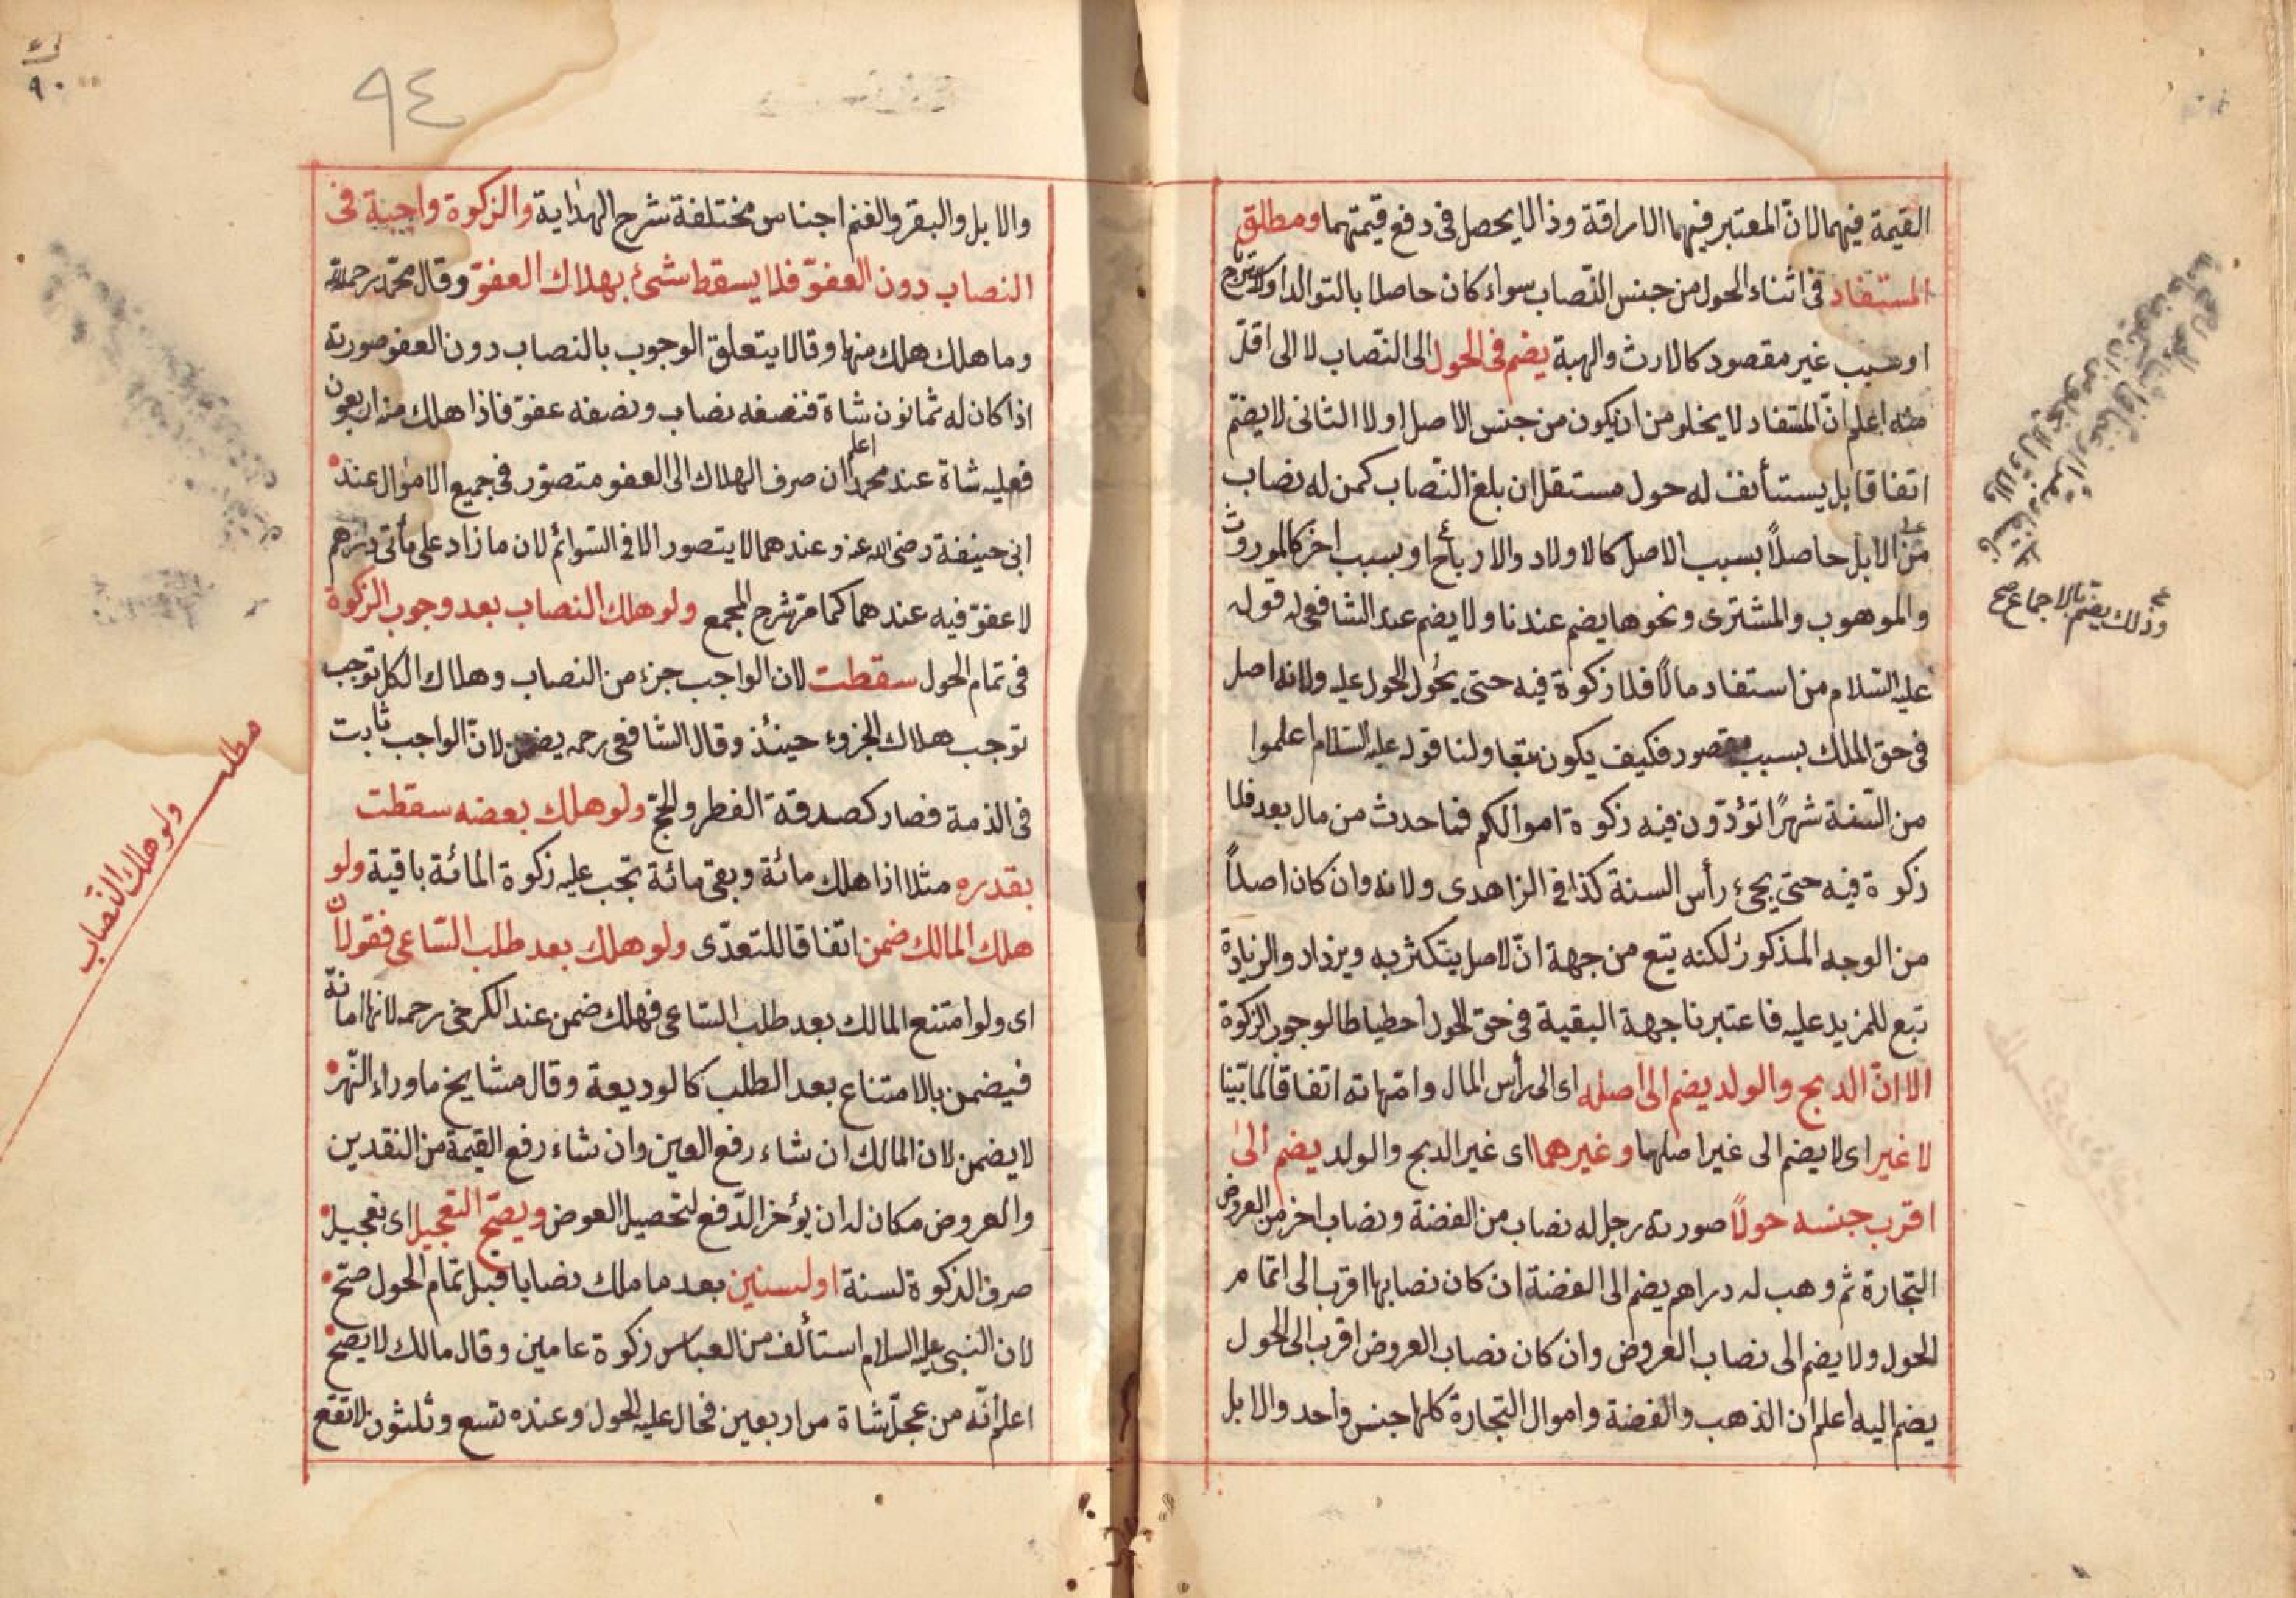 القيمة فيهما لانّ المعتبر فيهما الاراقة وذا لا يحصل فى دفع قيمتهما ومطلق
المستفاد فى اثناء الحول من جنس النّصاب سواء كان حاصلا بالتوالد او
او بسبب غير مقصود كالارث والهبة يضم فى الحول الى النّصاب لا الى اقلّ
منه اعلم انّ المستفاد لا يخلو من ان يكون من جنس الاصل او لا الثانى لا يضمّ
اتفاقا بل يستأنف له حول مستقل ان بلغ النّصاب كمن له نصاب
من الابل حاصلاً بسبب الاصل كالاولاد والارباح او بسبب اخر كالموروث
والموهوب والمشترى ونحوها يضم عندنا ولا يضم عند الشافعى له قوله
عليه السّلام من استفاد مالاً فلا زكوة فيه حتى يحول الحول عليه ولانه اصل
فى حق الملك بسبب مقصود فكيف يكون تبعا ولنا قوله عليه السّلام اعلموا
من السّنة شهرًا تؤدّون فيه زكوة اموالكم فما حدث من مال بعد فلا
زكوة فيه حتى يجئ رأس السنة كذا فى الزاهدى ولانه وان كان اصلاً
من الوجه المذكور لكنه يتبع من جهة انّ الاصل يتكثر به ويزداد والزيادة
تبع للمزيد عليه فاعتبرنا جهة البقية فى حق الحول احطياطا لوجوب الزكوة
الا انّ الدبح والولد يضم الى اصله اى الى رأس المال وامّهاته اتفاقا لما بيّنا
لا غير اى لا يضم الى غير اصلها وغيرهما اى غير الدبح والولد يضم الى
اقرب جنسه حولاً صورته رجل له نصاب من الفضة ونصاب اخر من العروض
التجارة ثم وهب له دراهم يضم الى الفضة ان كان نصابها اقرب الى اتمام
الحول ولا يضم الى نصاب العروض وان كان نصاب العروض اقرب الى الحول
يضم اليه اعلم ان الذهب والفضة واموال التجارة كلها جنس واحد والابل
وذلك يضم بالاجماع صح
٩٤
٩٠
والابل والبقر والغنم اجناس مختلفة شرح الهداية والزكوة واجبة فى
النصاب دون العفوّ فلا يسقط شئ بهلاك العفوّ وقال محمّد رحمه الله
وما هلك هلك منها وقالا يتعلق الوجوب بالنصاب دون العفو صورته
اذا كان له ثمانون شاة فنصفه نصاب ونصفه عفوّ فاذا هلك منه اربعون
فعليه شاة عند محمد اعلم ان صرف الهلاك الى العفو متصوّر فى جميع الاموال عند
ابى حنيفة رضى الله عنه وعندهما لا يتصور الا فى السّوائم لان ما زاد على مأتى درهم
لا عفوّ فيه عندهما كما مرّ شرح المجمع ولو هلك النصاب بعد وجوب الزكوة
فى تمام الحول سقطت لان الواجب جزء من النصاب وهلاك الكل توجب
توجب هلاك الجزوء حينئذ وقال الشافعى رحمه يضمن لانّ الواجب ثابت
فى الذمة فصار كصدقة الفطر والحجّ ولو هلك بعضه سقطت
بقدره مثلا اذا هلك مائة وبقى مائة تجب عليه زكوة المائة باقية ولو
هلك المالك ضمن اتفاقا للتعدّى ولو هلك بعد طلب السّاعى فقولان
اى ولو امتنع المالك بعد طلب السّاعى فهلك ضمن عند الكرخى رحمه لانها امانة
فيضمن بالامتناع بعد الطلب كالوديعة وقال مشايخ ماوراء النّهر
لا يضمن لان المالك ان شاء رفع العين وان شاء رفع القيمة من النقدين
والعروض مكان له ان يؤخر الدّفع لتحصيل العوض ويصحّ التعجيل اى تعجيل
صرف الزكوة لسنة او لسنين بعد ما ملك نصابا قبل تمام الحول صحّ
لان النبى عليه السلام استألف من العباس زكوة عامين وقال مالك لا يصحّ
اعلم انّه من عجلّ شاة من اربعين فحال عليه الحول وعنده تسع وثلثون لا تقع
مطلب
ولو هلك النّصاب